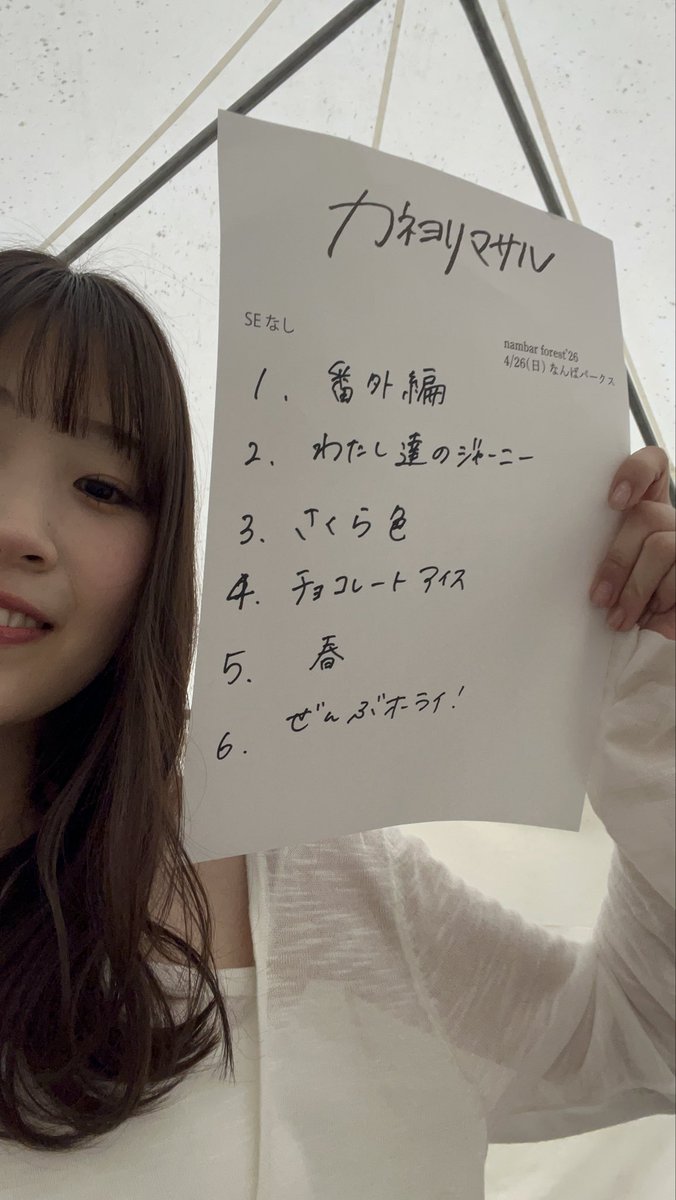 カネヨリマサル
SEなし
nambar forest'26
4/26(日) なんばパークス
1. 番外編
2. わたし達のジャーニー
3. さくら色
4. チョコレートアイス
5. 春
6. ぜんぶオーライ!